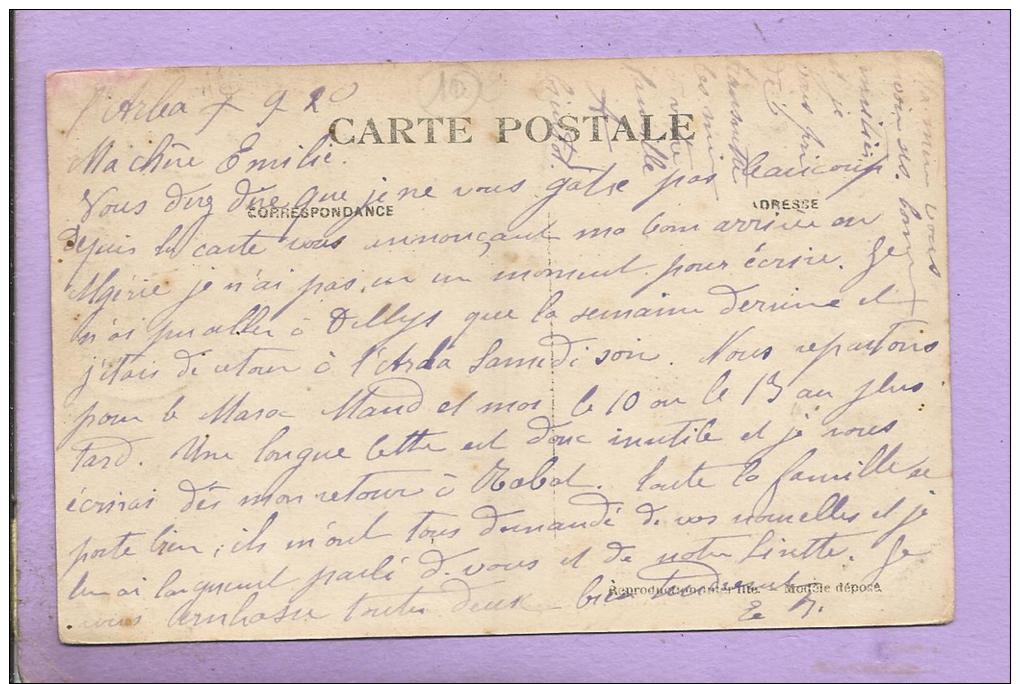 l'Arba 7 9 20
CARTE POSTALE
Ma chère Emilie.
Vous devez dire que je ne vous gâte pas beaucoup
CORRESPONDANCE
ADRESSE
Depuis la carte vous annonçant ma bonne arrivée en
Algérie je n'ai pas eu un moment pour écrire. Je
n'ai pu aller à Dellys que la semaine dernière et
j'étais de retour à l'Arba Samedi soir. Nous repartons
pour le Maroc Maud et moi le 10 ou le 13 au plus
tard. Une longue lettre est donc inutile et je vous
écrirai dès mon retour à Rabat. Toute la famille se
porte bien ; ils m'ont tous demandé de vos nouvelles et je
leur ai longuement parlé de vous et de notre Linette. Je
vous embrasse toutes deux bien tendrement
Reproduction interdite. — Modèle déposé.
Maman vous
voir ses bons
amitiés
et je
vous prie
de
transmettre
les miennes
à votre
famille
A
bientôt.